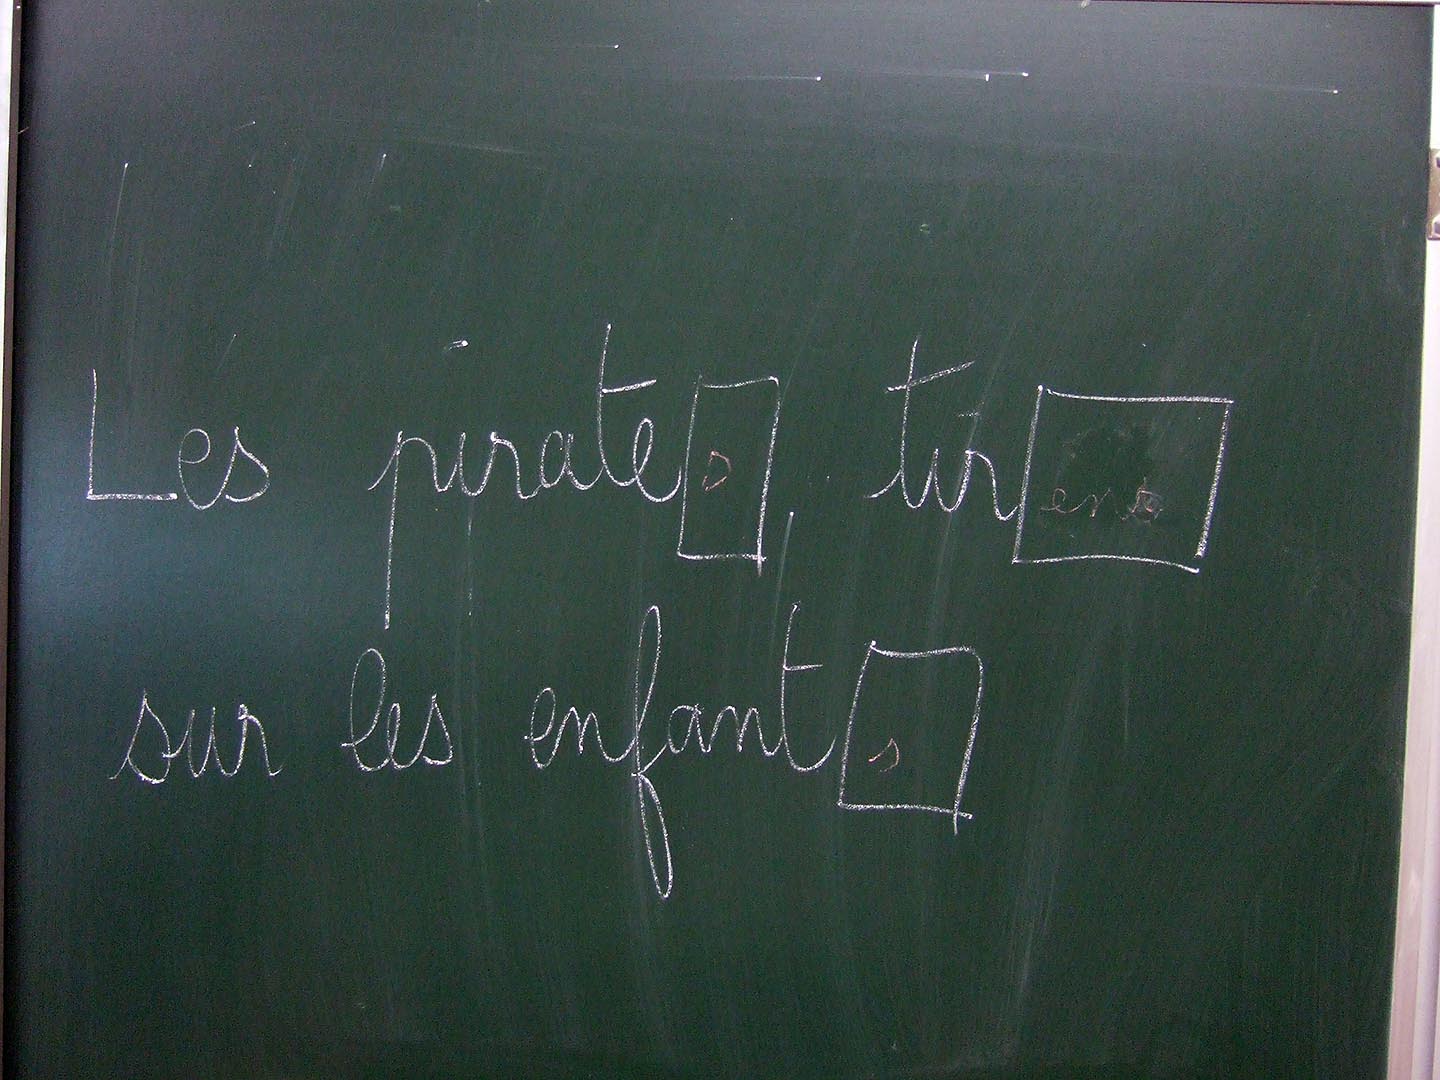 Les pirates, tirent
sur les enfants